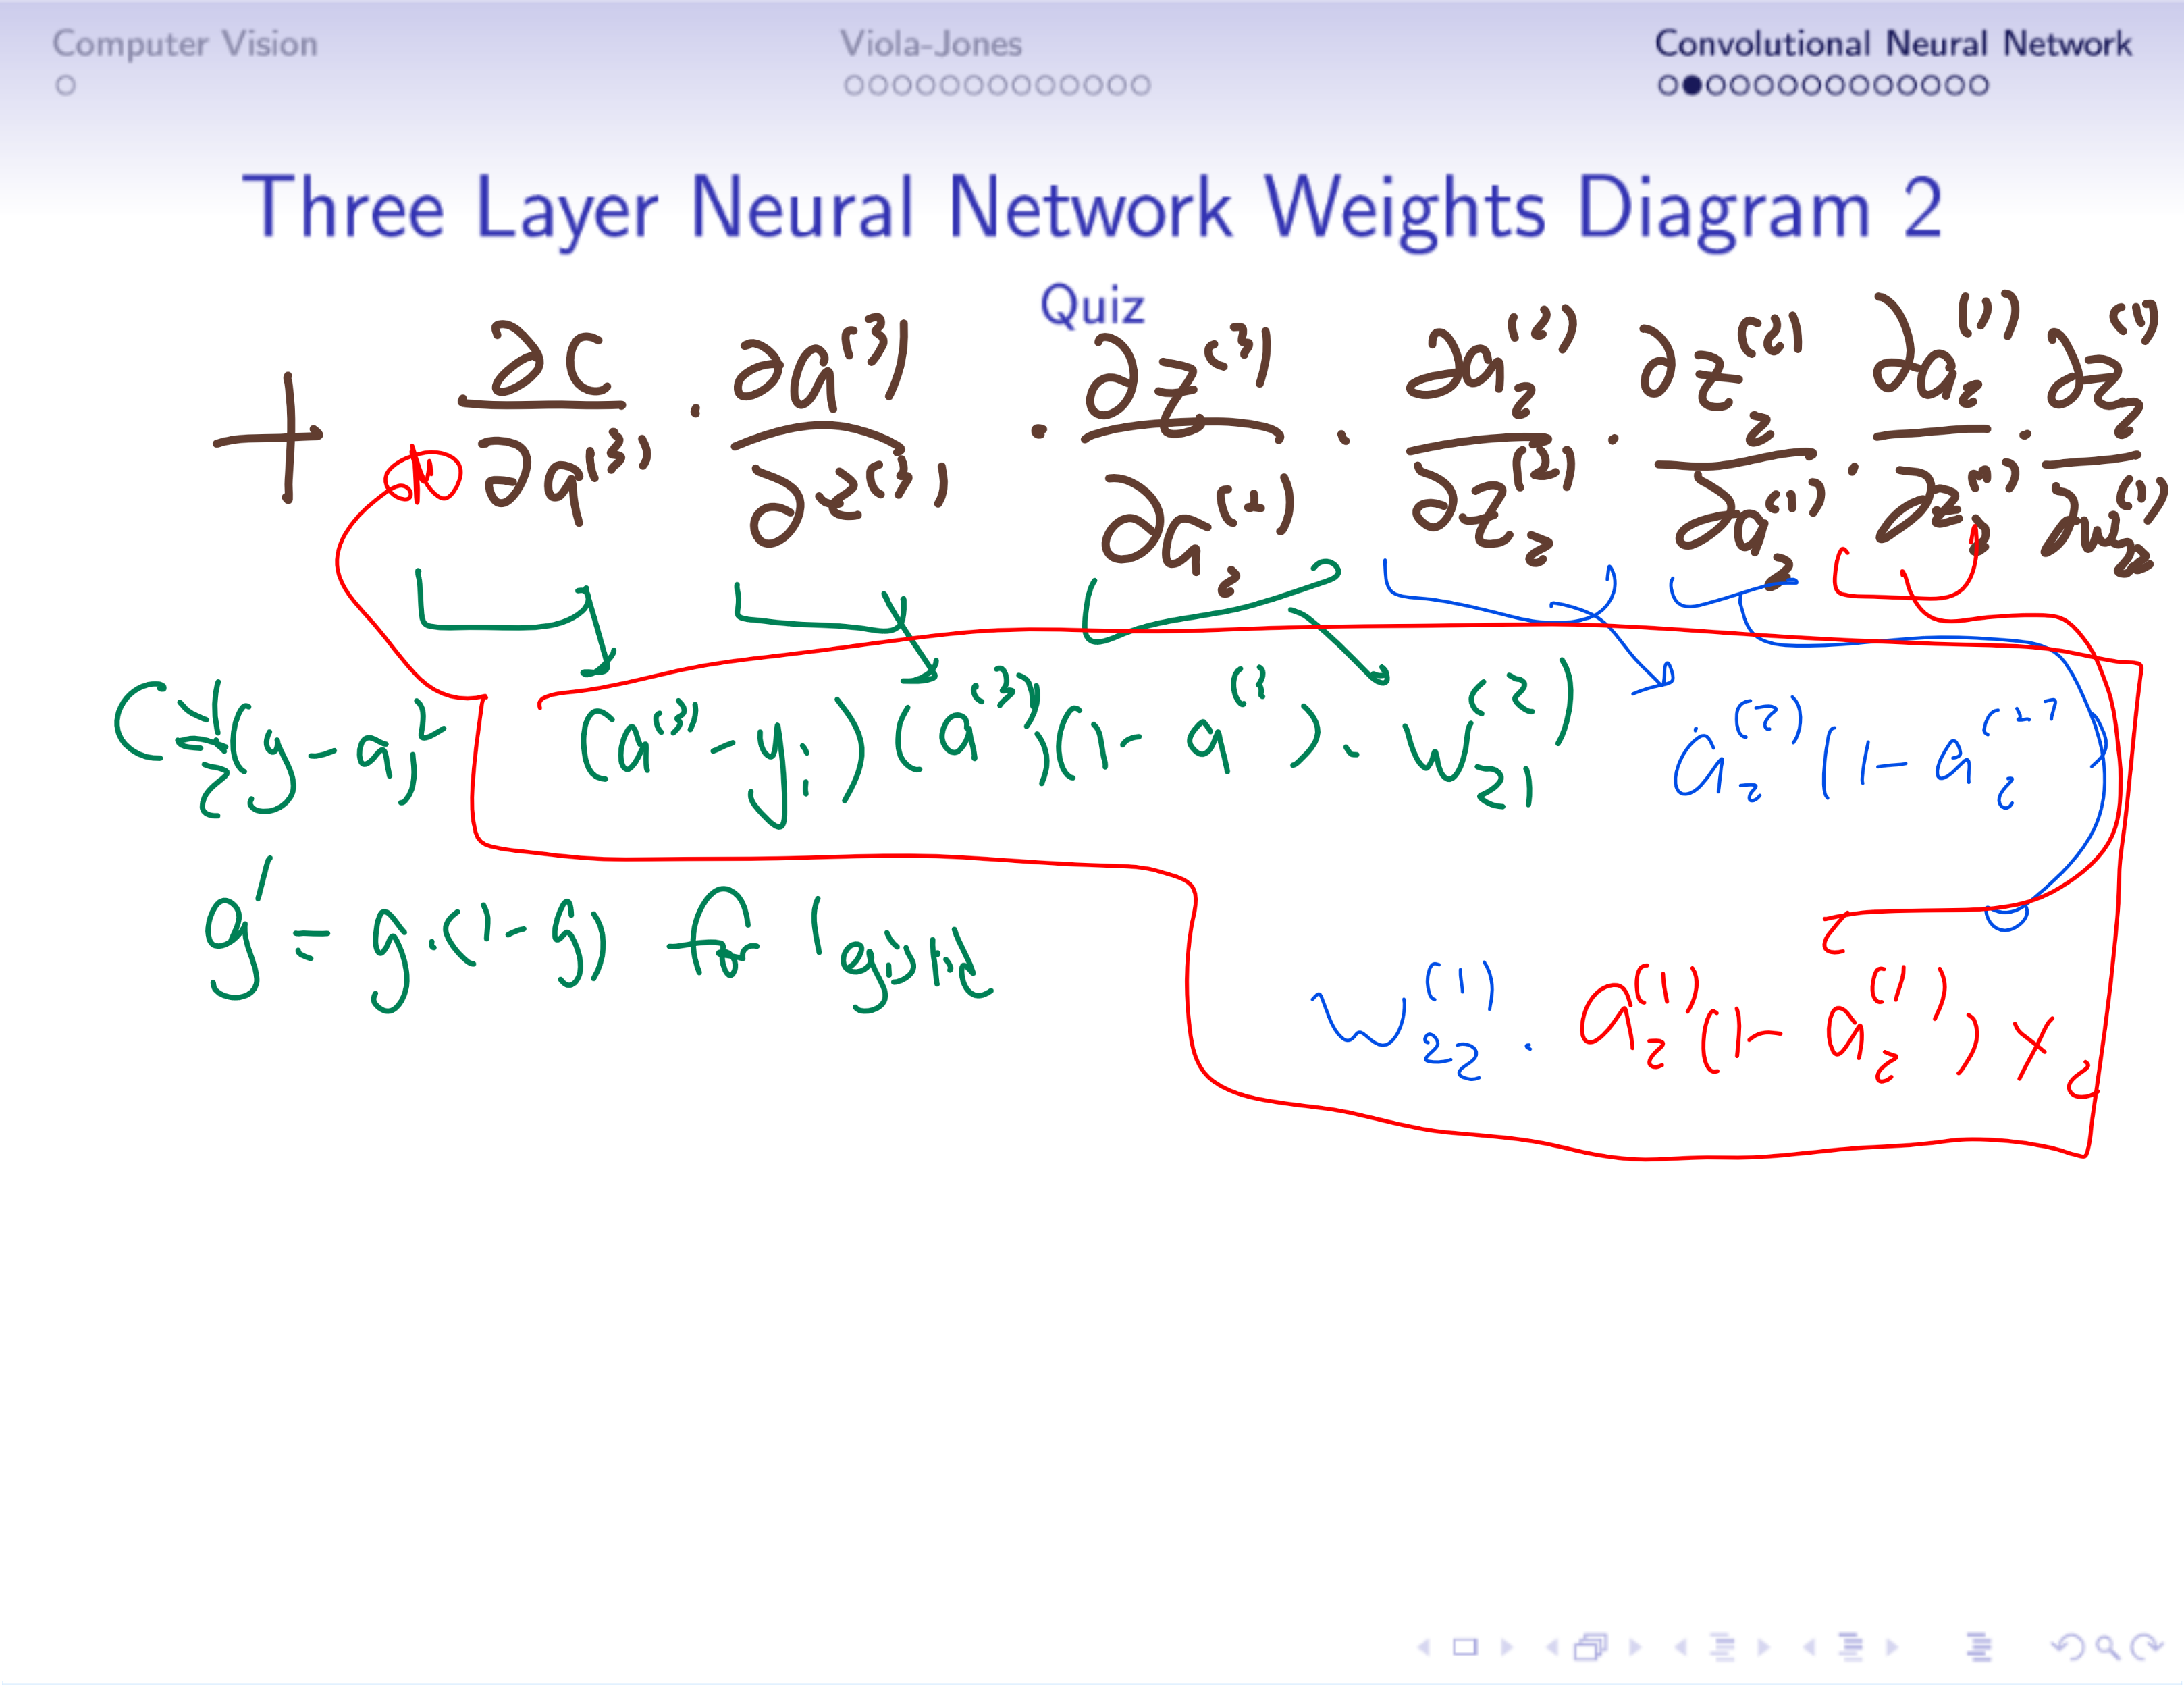 Computer Vision Viola-Jones Convolutional Neural Network
Three Layer Neural Network Weights Diagram 2
Quiz
+ ∂C/∂a^(3) · ∂a^(3)/∂z^(3) · ∂z^(3)/∂a_2^(2) · ∂a_2^(2)/∂z_2^(2) · ∂z_2^(2)/∂a_2^(1) · ∂a_2^(1)/∂z_2^(1) · ∂z_2^(1)/∂w_22^(1)
C = 1/2 (y - a)^2 (a^(3) - y_i) (a^(3))(1 - a^(3)) · w_21^(2) a_2^(2) (1 - a_2^(2)
g' = g·(1-g) for logistic
w_22^(1) · a_2^(1) (1 - a_2^(1)) x_2